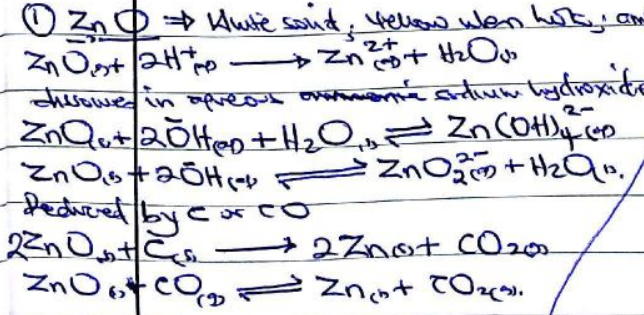 ① ZnO ⇒ White solid, yellow when hot, am
ZnO(s) + 2H⁺(aq) ⟶ Zn²⁺(aq) + H₂O(l)
dissolves in aqueous sodium hydroxide
ZnO(s) + 2ŌH(aq) + H₂O(l) ⇌ Zn(OH)₄²⁻(aq)
ZnO(s) + 2ŌH(aq) ⇌ ZnO₂²⁻(aq) + H₂O(l).
Reduced by C or CO
2ZnO(s) + C(s) ⟶ 2Zn(s) + CO₂(g)
ZnO(s) + CO(g) ⇌ Zn(s) + CO₂(g).